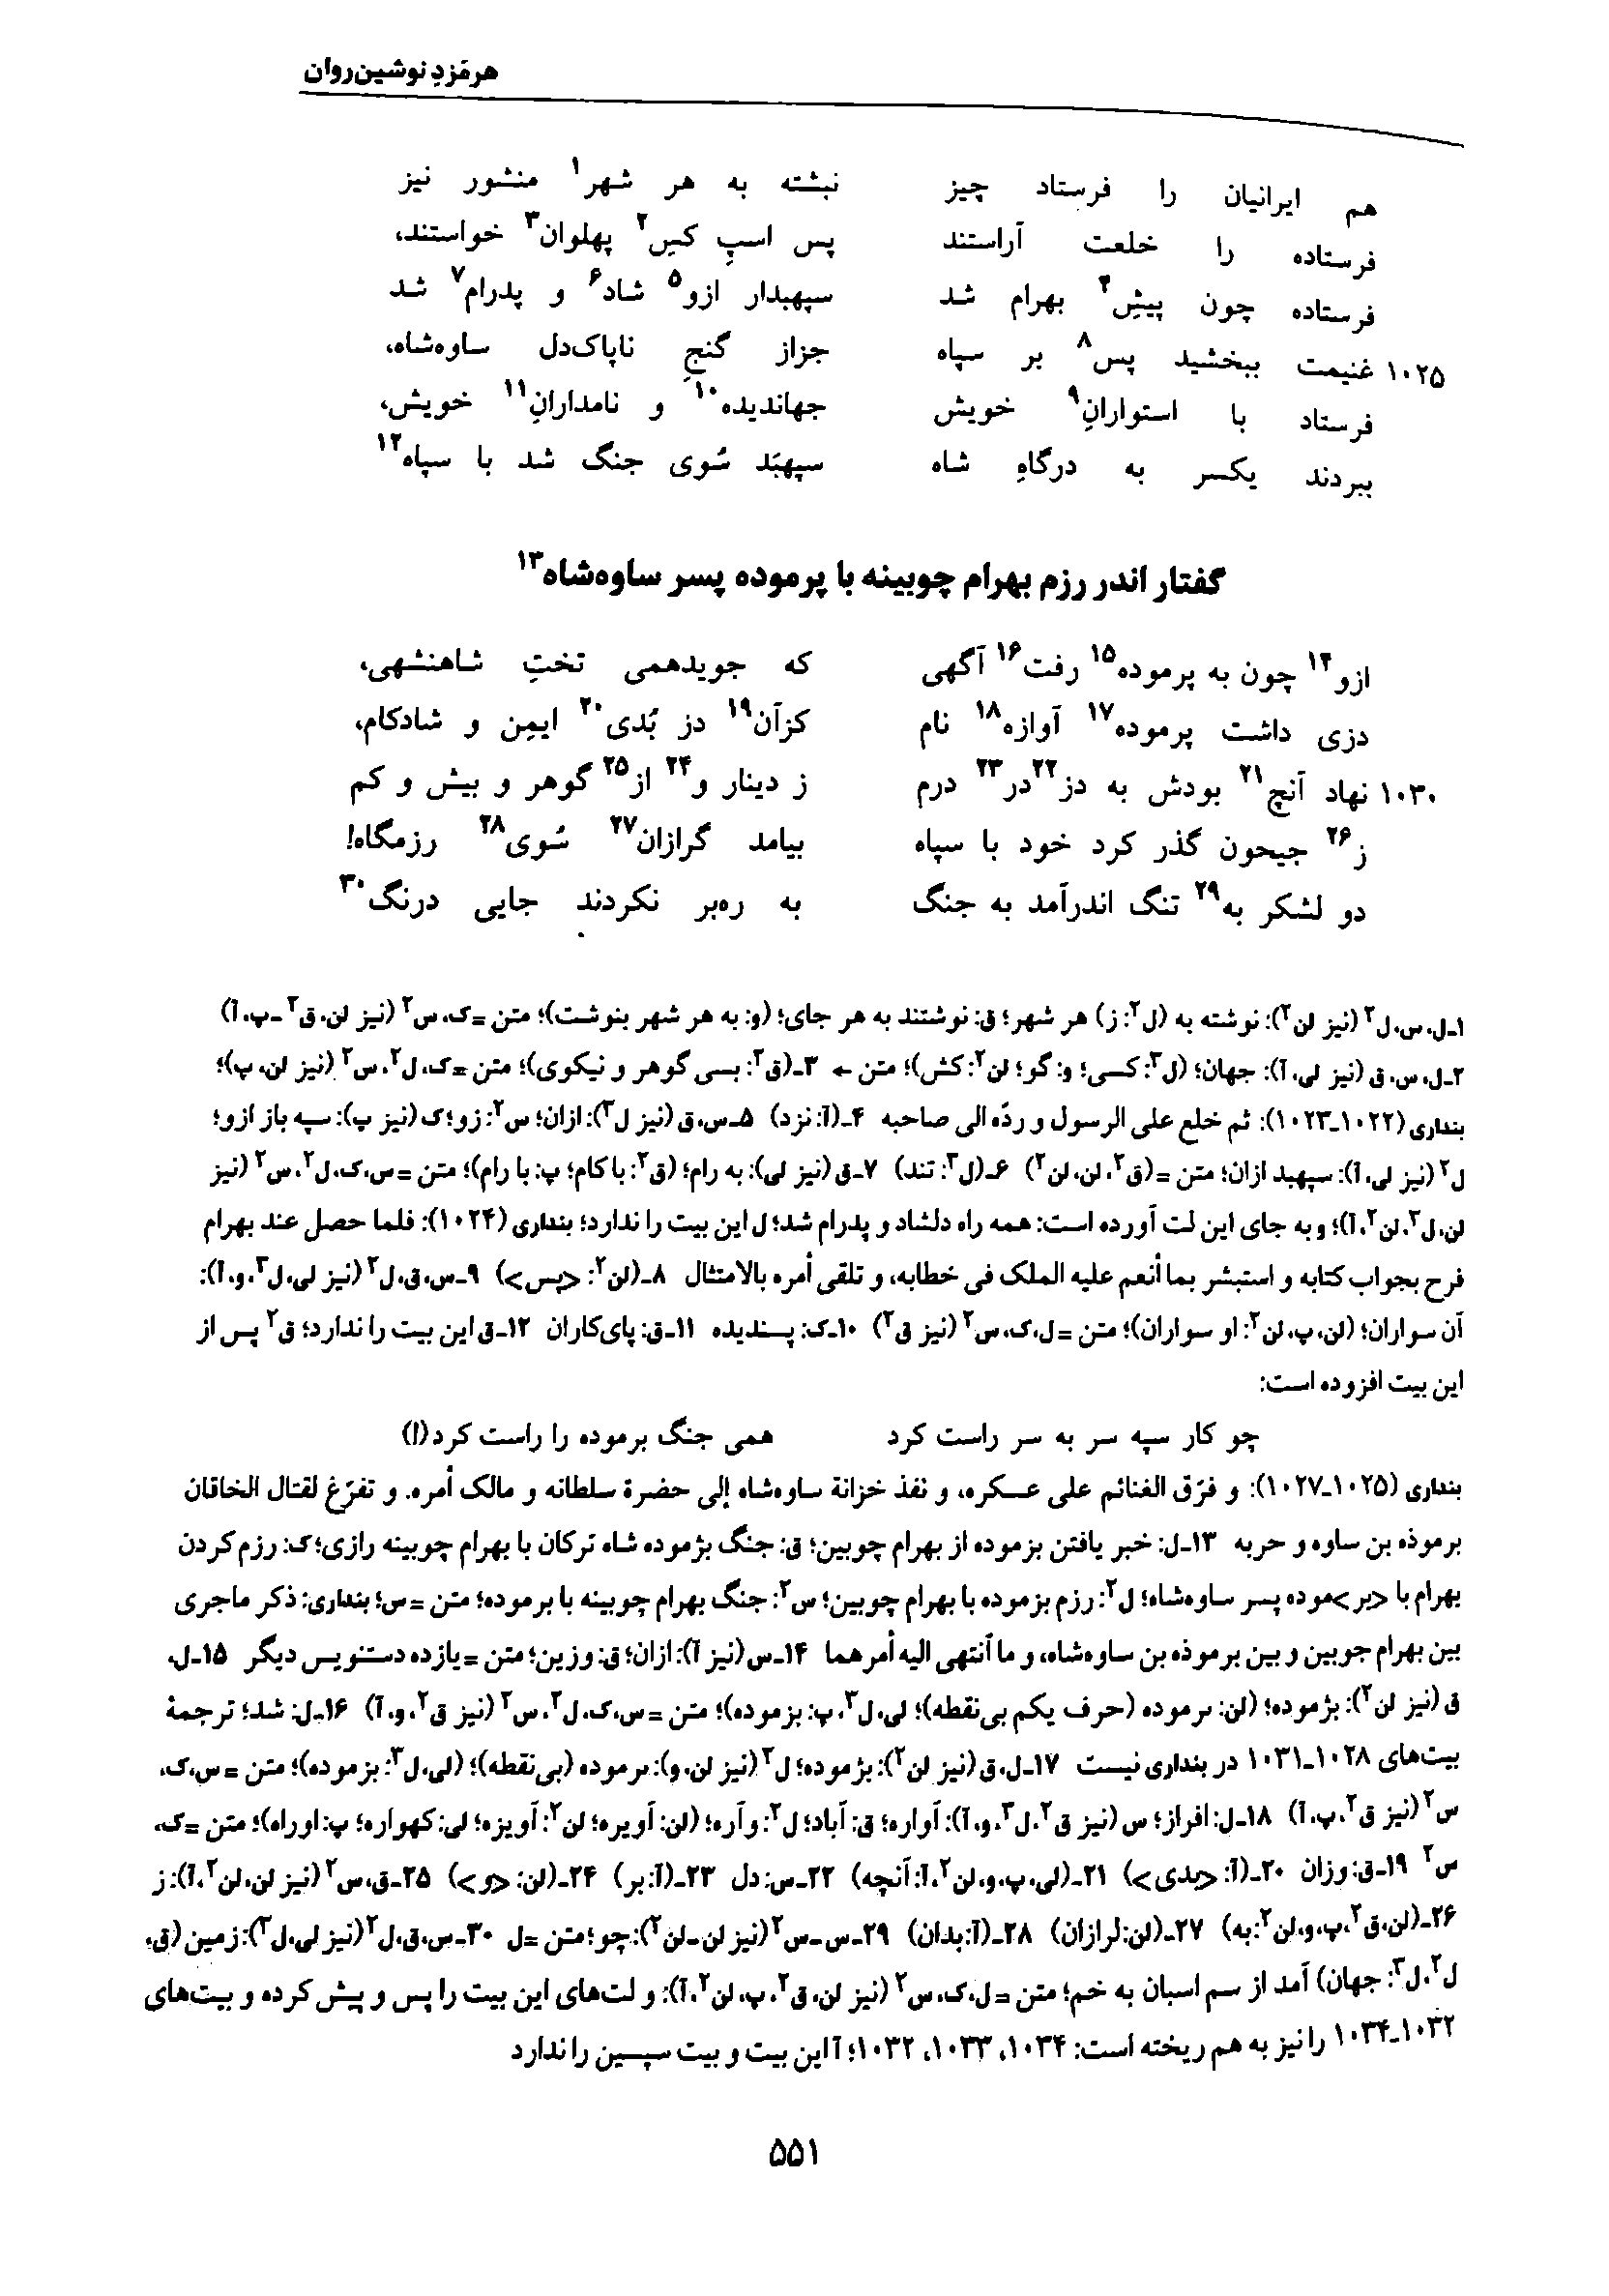 هرمَزدِ نوشین‌روان
هم ایرانیان را فرستاد چیز نبشته به هر شهر۱ منشور نیز
فرستاده را خلعت آراستند پس اسپِ کیی۲ پهلوان۳ خواستند،
فرستاده چون پیشِ۴ بهرام شد سپهبدار ازو۵ شاد۶ و پدرام۷ شد
۱۰۲۵ غنیمت ببخشید پس۸ بر سپاه جزاز گنجِ ناپاک‌دل ساوه‌شاه،
فرستاد با استوارانِ۹ خویش جهاندیده۱۰ و نامدارانِ۱۱ خویش،
ببردند یکسر به درگاهِ شاه سپهبَد سُوی جنگ شد با سپاه۱۲
گفتار اندر رزم بهرام چوبینه با پرموده پسر ساوه‌شاه۱۳
ازو۱۴ چون به پرموده۱۵ رفت۱۶ آگهی که جویدهمی تختِ شاهنشهی،
دزی داشت پرموده۱۷ آوازه۱۸ نام کزآن۱۹ دز بُدی۲۰ ایمِن و شادکام،
۱۰۳۰ نهاد آنچ۲۱ بودش به دز۲۲در۲۳ درم ز دینار و۲۴ از۲۵ گوهر و بیش و کم
ز۲۶ جیحون گذر کرد خود با سپاه بیامد گرازان۲۷ سُوی۲۸ رزمگاه!
دو لشکر به۲۹ تنگ اندرآمد به جنگ به ره‌بر نکردند جایی درنگ۳۰
۱ـ ل، س، ل۲ (نیز لن۲): نوشته به (ل۲: ز) هر شهر؛ ق: نوشتند به هر جای؛ (و: به هر شهر بنوشت)؛ متن = ک، س۲ (نیز لن، ق۲ ـ پ، آ)
۲ـ ل، س، ق (نیز لی، آ): جهان؛ (ل۳: کسی؛ و: گو؛ لن۲: کش)؛ متن ← ۳ـ (ق۲: بسی گوهر و نیکوی)؛ متن = ک، ل۲، س۲ (نیز لن، پ)؛
بنداری (۱۰۲۲ـ۱۰۲۳): ثم خلع علی الرسول و ردّه الی صاحبه ۴ـ (آ: نزد) ۵ـ س، ق (نیز ل۳): ازان؛ س۲: زو؛ ک (نیز پ): سپه باز ازو؛
ل۲ (نیز لی، آ): سپهبد ازان؛ متن = (ق۲، لن، لن۲) ۶ـ (ل۳: تند) ۷ـ ق (نیز لی): به رام؛ (ق۲: با کام؛ پ: با رام)؛ متن = س، ک، ل۲، س۲ (نیز
لن، ل۳، لن۲، آ)؛ و به جای این لت آورده است: همه راه دلشاد و پدرام شد؛ ل این بیت را ندارد؛ بنداری (۱۰۲۴): فلما حصل عند بهرام
فرح بجواب کتابه و استبشر بما أنعم علیه الملک فی خطابه، و تلقی أمره بالامتثال ۸ـ (لن۲: <پس>) ۹ـ س، ق، ل۲ (نیز لی، ل۳، و، آ):
آن سواران؛ (لن، پ، لن۲: او سواران)؛ متن = ل، ک، س۲ (نیز ق۲) ۱۰ـ ک: پسندیده ۱۱ـ ق: پای‌کاران ۱۲ـ ق این بیت را ندارد؛ ق۲ پس از
این بیت افزوده است:
چو کار سپه سر به سر راست کرد همی جنگ برموده را راست کرد(!)
بنداری (۱۰۲۵ـ۱۰۲۷): و فرّق الغنائم علی عسکره، و نفذ خزانة ساوه‌شاه إلی حضرة سلطانه و مالک أمره. و تفرّغ لقتال الخاقان
برموذه بن ساوه و حربه ۱۳ـ ل: خبر یافتن بزموده از بهرام چوبین؛ ق: جنگ بژموده شاه ترکان با بهرام چوبینه رازی؛ ک: رزم کردن
بهرام با <بر>موده پسر ساوه‌شاه؛ ل۲: رزم بزموده با بهرام چوبین؛ س۲: جنگ بهرام چوبینه با برموده؛ متن = س؛ بنداری: ذکر ماجری
بین بهرام جوبین و بین برموذه بن ساوه‌شاه، و ما أنتهی الیه أمرهما ۱۴ـ س (نیز آ): ازان؛ ق: وزین؛ متن = یازده دستنویس دیگر ۱۵ـ ل،
ق (نیز لن۲): بژموده؛ (لن: ٮرموده (حرف یکم بی‌نقطه)؛ لی، ل۳، پ: بزموده)؛ متن = س، ک، ل۲، س۲ (نیز ق۲، و، آ) ۱۶ـ ل: شد؛ ترجمهٔ
بیت‌های ۱۰۲۸ـ۱۰۳۱ در بنداری نیست ۱۷ـ ل، ق (نیز لن۲): بژموده؛ ل۲ (نیز لن، و): ٮرموده (بی‌نقطه)؛ (لی، ل۳: بزموده)؛ متن = س، ک،
س۲ (نیز ق۲، پ، آ) ۱۸ـ ل: افراز؛ س (نیز ق۲، ل۳، و، آ): آواره؛ ق: آباد؛ ل۲: وآره؛ (لن: آویره؛ لن۲: آویزه؛ لی: کهواره؛ پ: اوراه)؛ متن = ک،
س۲ ۱۹ـ ق: وزان ۲۰ـ (آ: <بدی>) ۲۱ـ (لی، پ، و، لن۲، آ: آنچه) ۲۲ـ س: دل ۲۳ـ (آ: بر) ۲۴ـ (لن: <و>) ۲۵ـ ق، س۲ (نیز لن، لن۲، آ): ز
۲۶ـ (لن، ق۲، پ، و، لن۲: به) ۲۷ـ (لن: لرازان) ۲۸ـ (آ: بدان) ۲۹ـ س ـ س۲ (نیز لن ـ لن۲): چو؛ متن = ل ۳۰ـ س، ق، ل۲ (نیز لی، ل۳): زمین (ق،
ل۲، ل۳: جهان) آمد از سم اسبان به خم؛ متن = ل، ک، س۲ (نیز لن، ق۲، پ، لن۲، آ): و لت‌های این بیت را پس و پیش کرده و بیت‌های
۱۰۳۲ـ۱۰۳۴ را نیز به هم ریخته است: ۱۰۳۴، ۱۰۳۳، ۱۰۳۲؛ آ این بیت و بیت سپسین را ندارد
۵۵۱